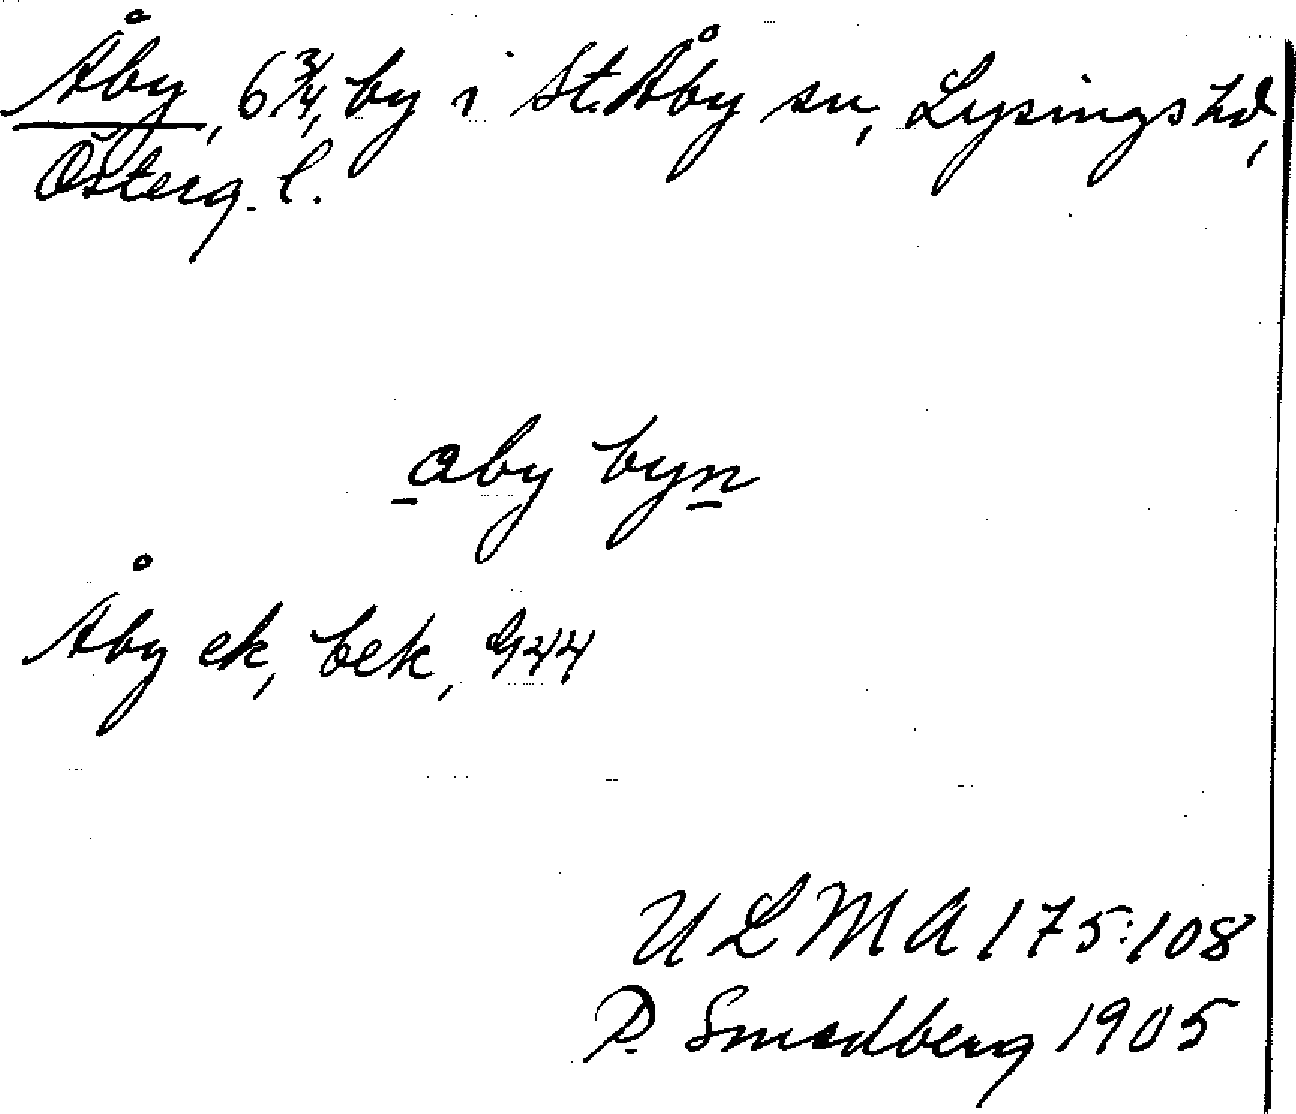 Åby, 6 3/4, by i St. Åby sn, Lysings hd,
Österg. l.
aby byn
Åby ek, bek, 944
ULMA 175:108
P. Smedberg 1905